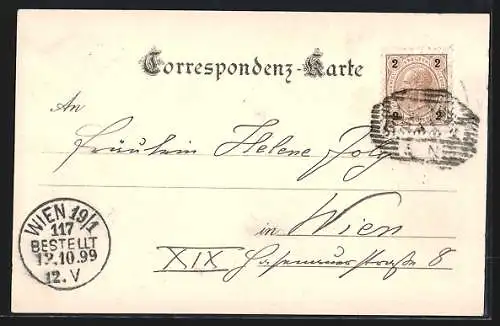 Correspondenz-Karte
2 2
2 2
An
Fräulein Helene
in Wien
XIX Hasenauerstraße 8
WIEN 19/1
117
BESTELLT
12.10.99
12.V